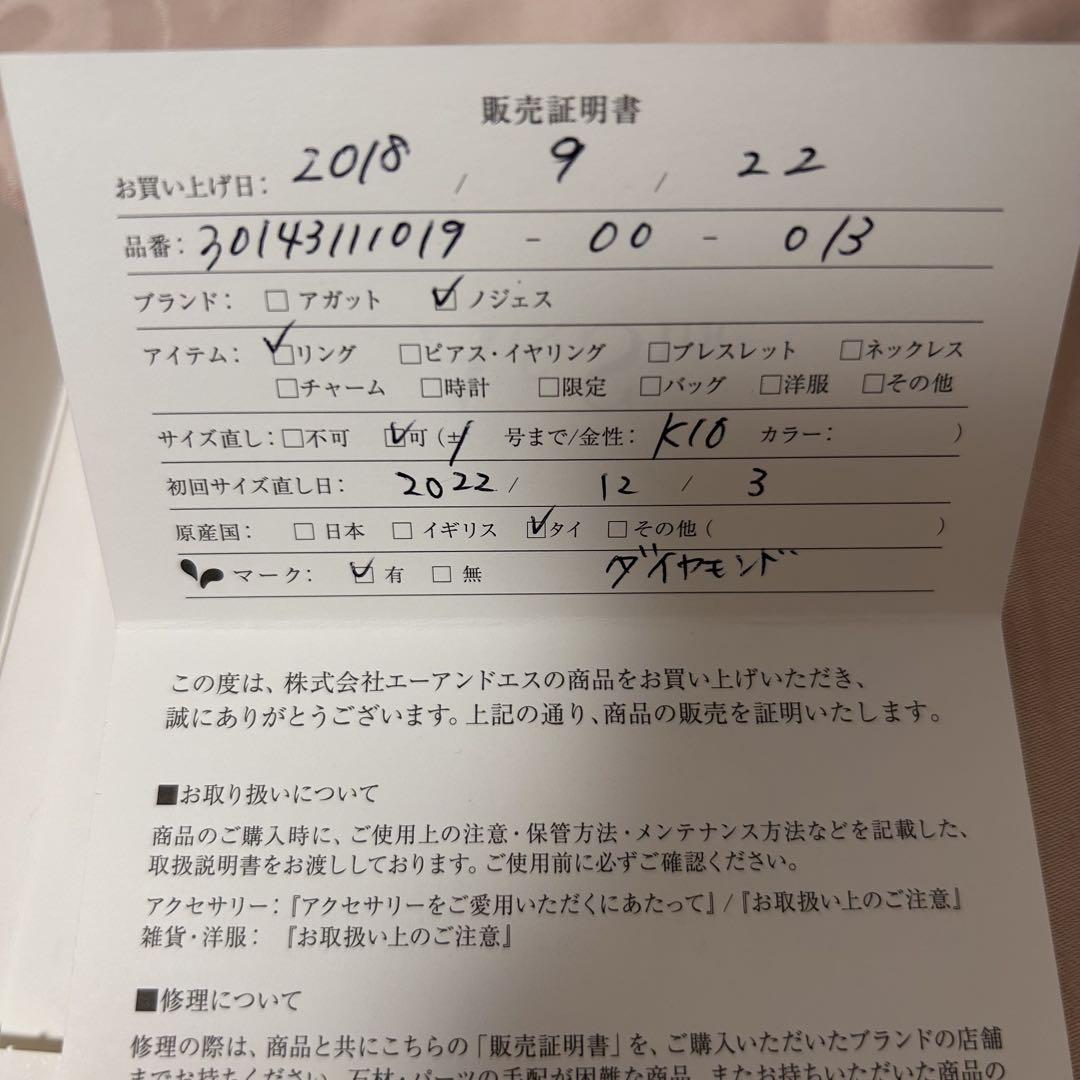 販売証明書
お買い上げ日: 2018 / 9 / 22
品番: 30143111019 - 00 - 013
ブランド: □ アガット ☑ ノジェス
アイテム: ☑リング □ピアス・イヤリング □ブレスレット □ネックレス
□チャーム □時計 □限定 □バッグ □洋服 □その他
サイズ直し: □不可 ☑可 (±1 号まで/金性: K10 カラー: )
初回サイズ直し日: 2022 / 12 / 3
原産国: □ 日本 □ イギリス ☑タイ □その他 ( )
マーク: ☑ 有 □ 無 ダイヤモンド
この度は、株式会社エーアンドエスの商品をお買い上げいただき、
誠にありがとうございます。上記の通り、商品の販売を証明いたします。
■お取り扱いについて
商品のご購入時に、ご使用上の注意・保管方法・メンテナンス方法などを記載した、
取扱説明書をお渡ししております。ご使用前に必ずご確認ください。
アクセサリー:『アクセサリーをご愛用いただくにあたって』/『お取扱い上のご注意』
雑貨・洋服: 『お取扱い上のご注意』
■修理について
修理の際は、商品と共にこちらの「販売証明書」を、ご購入いただいたブランドの店舗
までお持ちください。石材・パーツの手配が困難な商品、またお持ちいただいた商品の